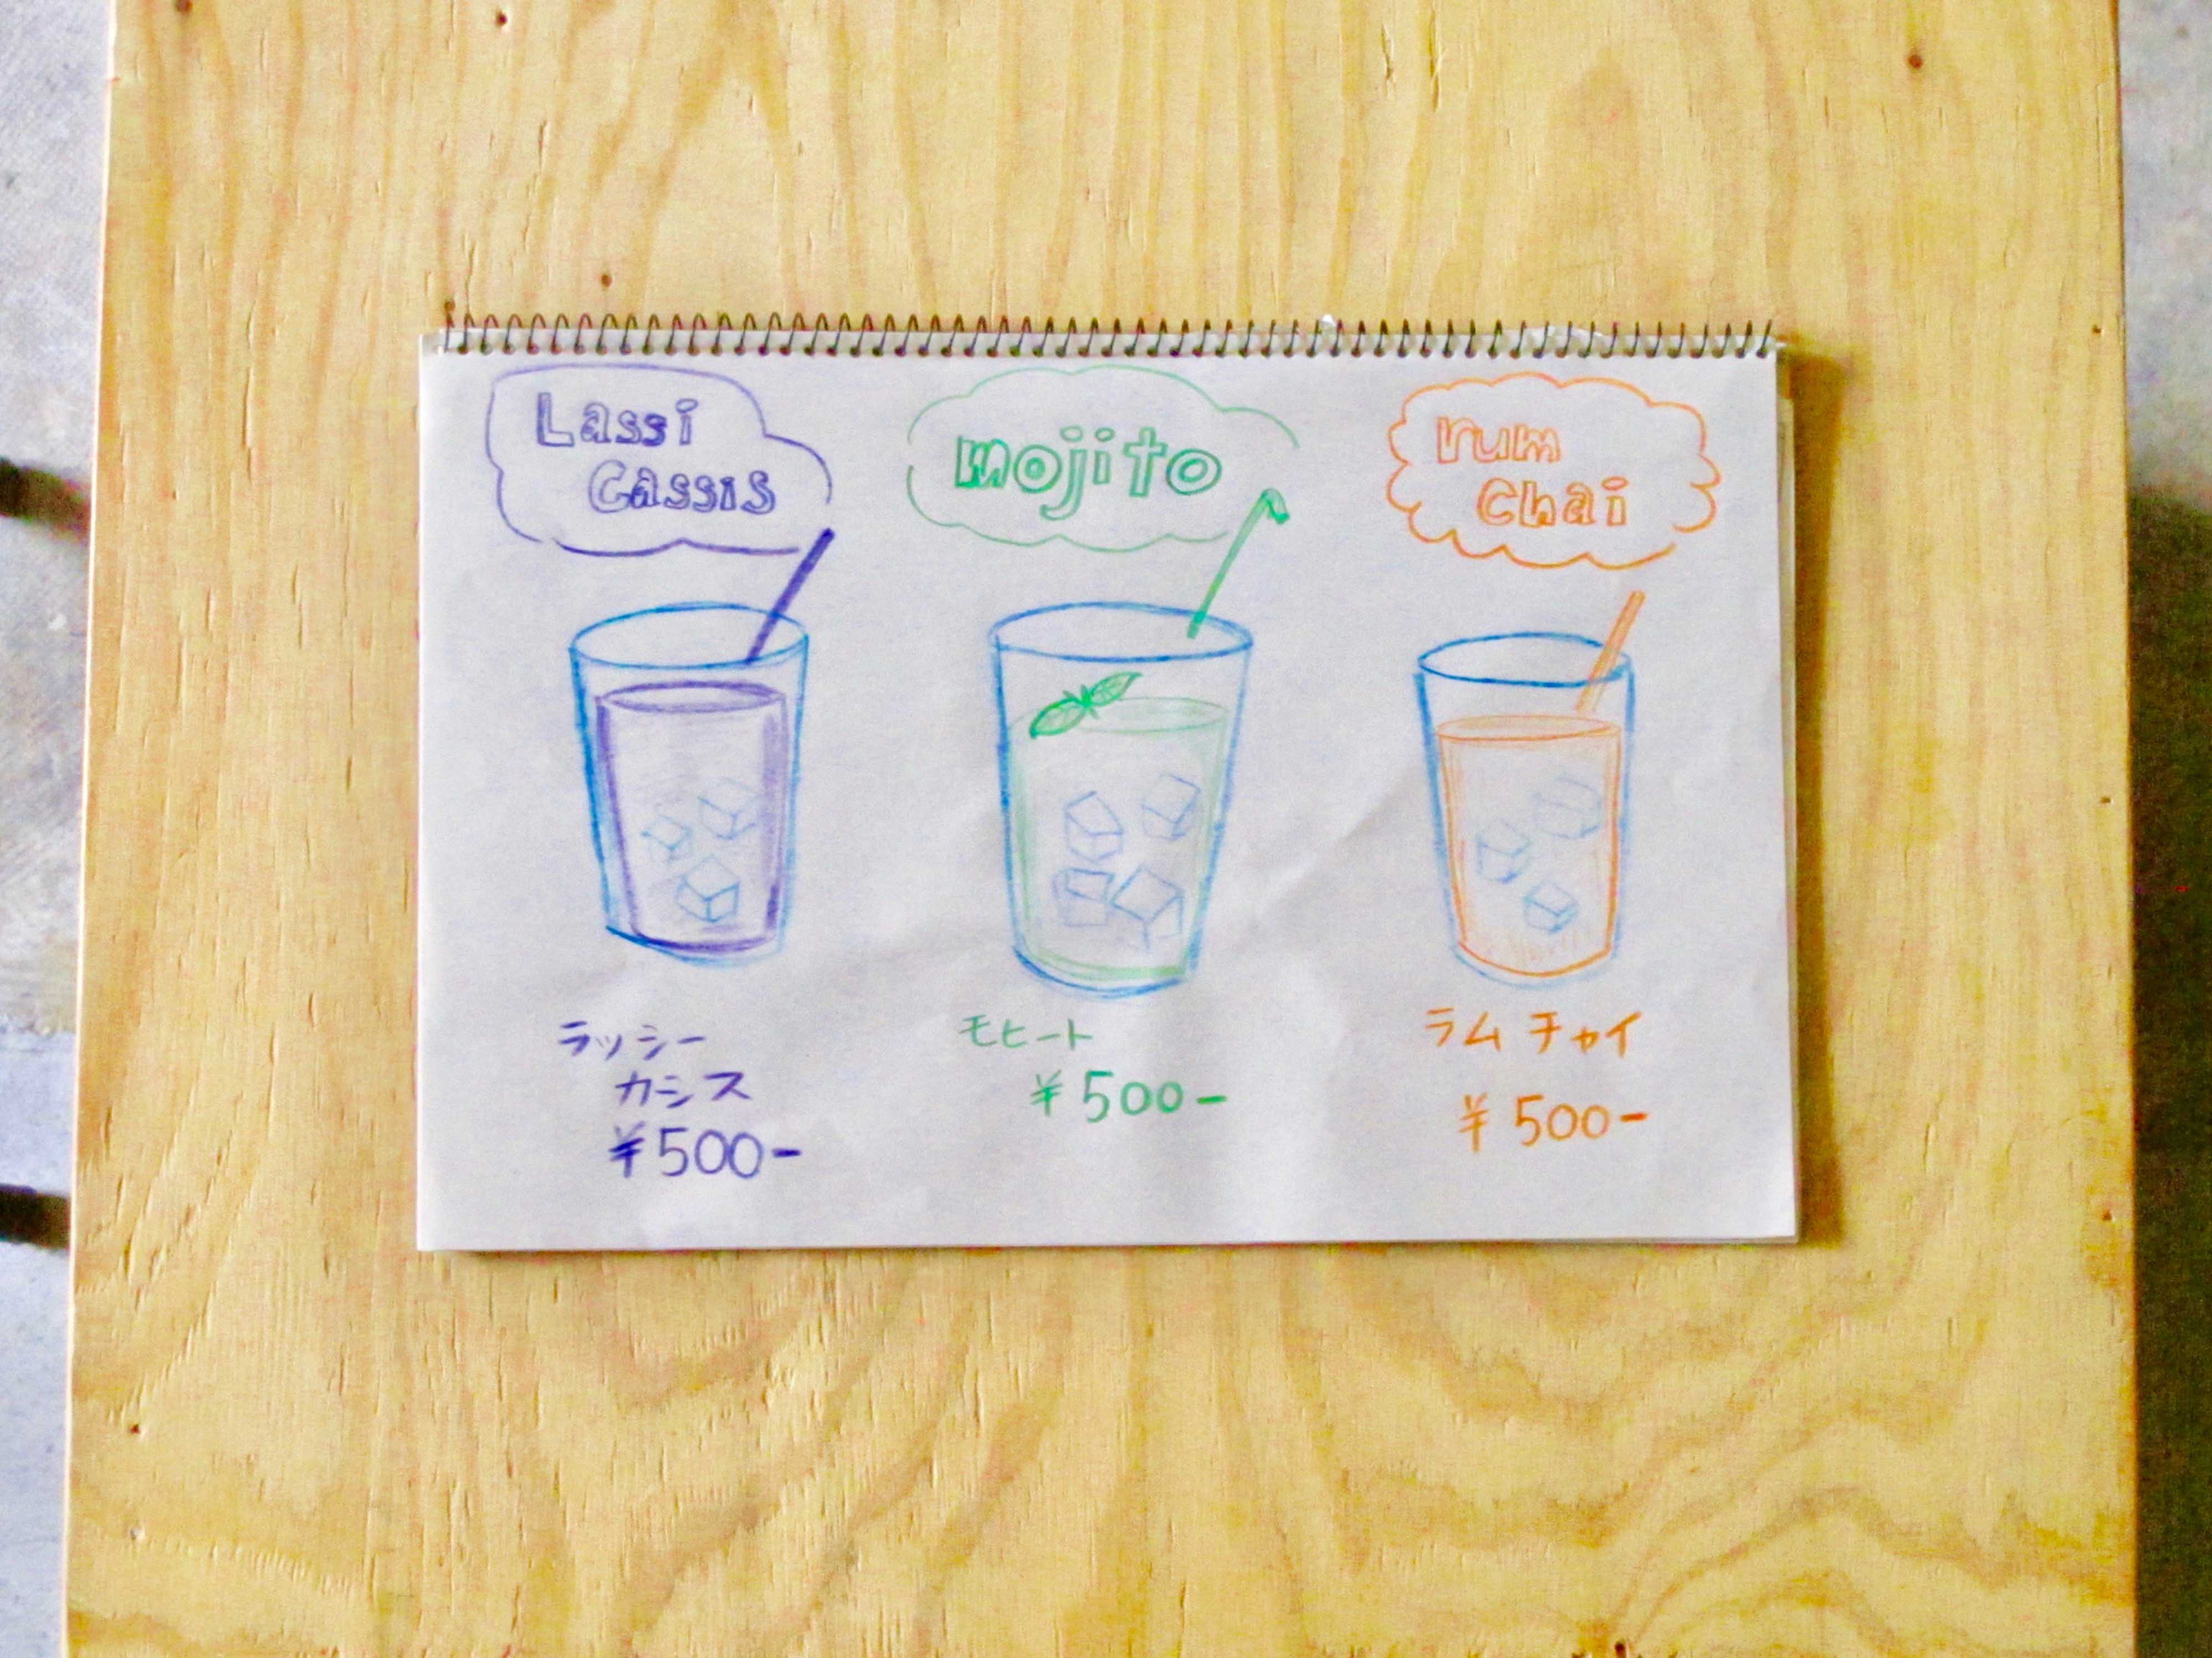 Lassi
Cassis
ラッシー
カシス
¥500-
mojito
モヒート
¥500-
rum
chai
ラム チャイ
¥500-